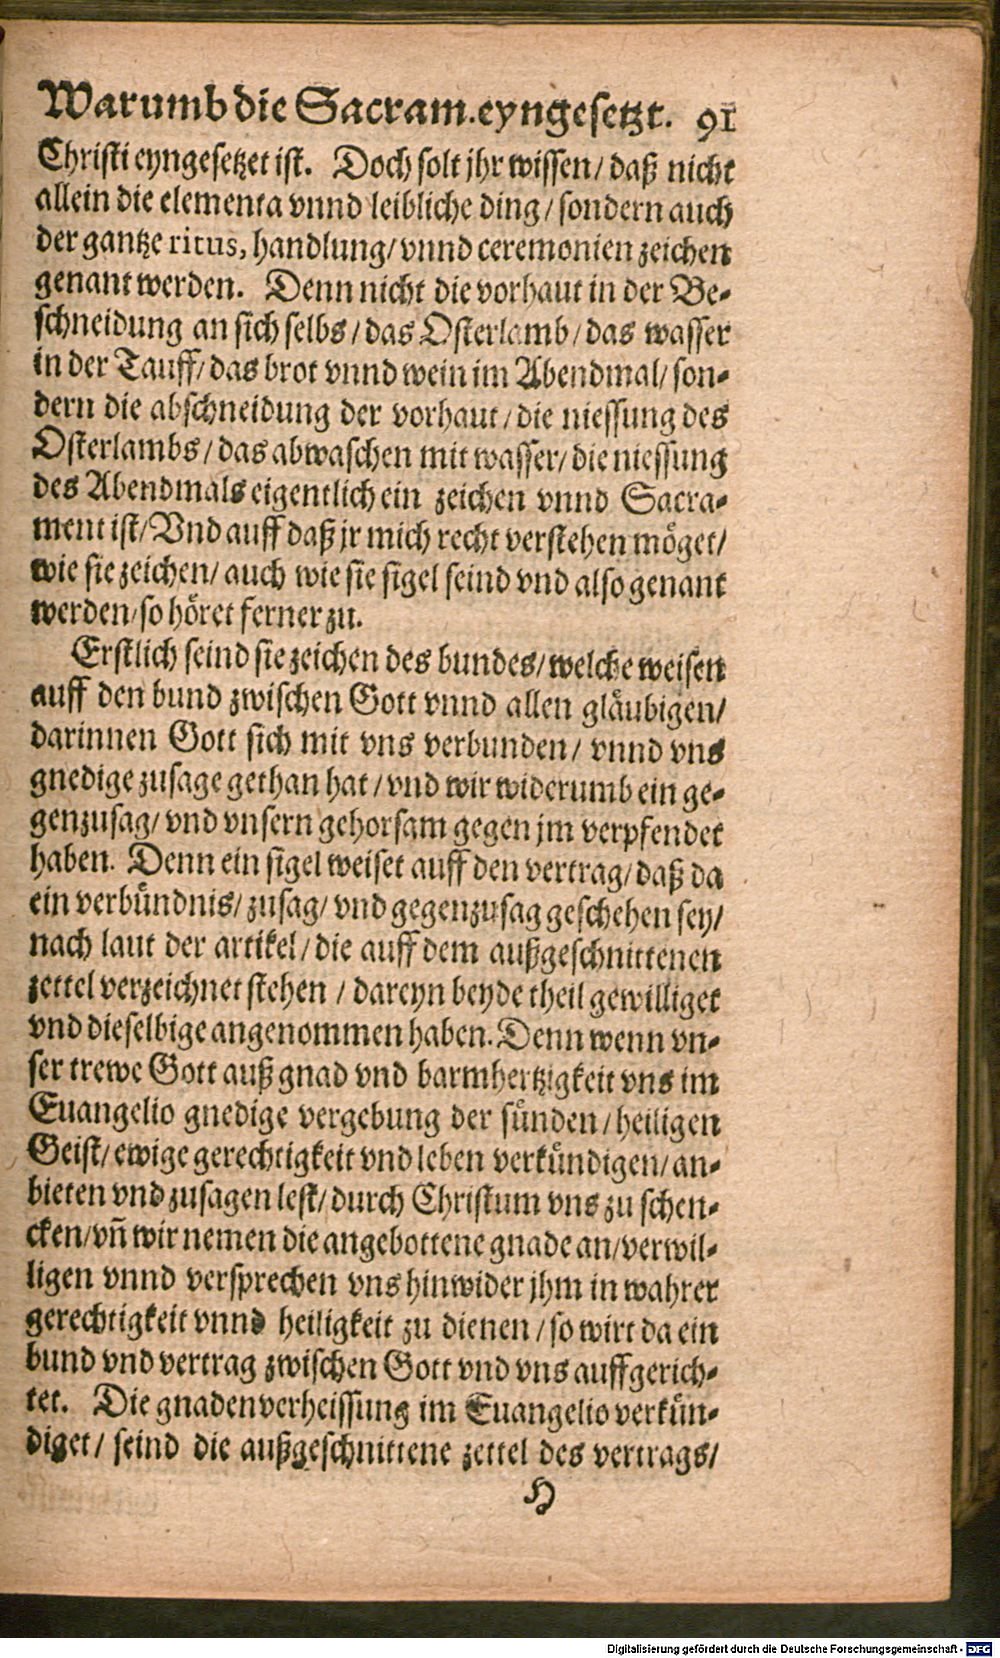 Warumb die Sacram. eyngesetzt. 91
Christi eyngesetzet ist. Doch solt jhr wissen/ daß nicht
allein die elementa vnnd leibliche ding/ sondern auch
der gantze ritus, handlung/ vnnd ceremonien zeichen
genant werden. Denn nicht die vorhaut in der Be-
schneidung an sich selbs/ das Osterlamb/ das wasser
in der Tauff/ das brot vnnd wein im Abendmal/ son-
dern die abschneidung der vorhaut/ die niessung des
Osterlambs/ das abwaschen mit wasser/ die niessung
des Abendmals eigentlich ein zeichen vnnd Sacra-
ment ist/ Vnd auff daß jr mich recht verstehen möget/
wie sie zeichen/ auch wie sie sigel seind vnd also genant
werden/ so höret ferner zu.
Erstlich seind sie zeichen des bundes/ welche weisen
auff den bund zwischen Gott vnnd allen gläubigen/
darinnen Gott sich mit vns verbunden/ vnnd vns
gnedige zusage gethan hat/ vnd wir widerumb ein ge-
genzusag/ vnd vnsern gehorsam gegen jm verpfendet
haben. Denn ein sigel weiset auff den vertrag/ daß da
ein verbündnis/ zusag/ vnd gegenzusag geschehen sey/
nach laut der artikel/ die auff dem außgeschnittenen
zettel verzeichnet stehen / dareyn beyde theil gewilliget
vnd dieselbige angenommen haben. Denn wenn vn-
ser trewe Gott auß gnad vnd barmhertzigkeit vns im
Euangelio gnedige vergebung der sünden/ heiligen
Geist/ ewige gerechtigkeit vnd leben verkündigen/ an-
bieten vnd zusagen lest/ durch Christum vns zu schen-
cken/ vñ wir nemen die angebottene gnade an/ verwil-
ligen vnnd versprechen vns hinwider jhm in wahrer
gerechtigkeit vnnd heiligkeit zu dienen/ so wirt da ein
bund vnd vertrag zwischen Gott vnd vns auffgerich-
tet. Die gnadenverheissung im Euangelio verkün-
diget/ seind die außgeschnittene zettel des vertrags/
H
Digitalisierung gefördert durch die Deutsche Forschungsgemeinschaft - DFG